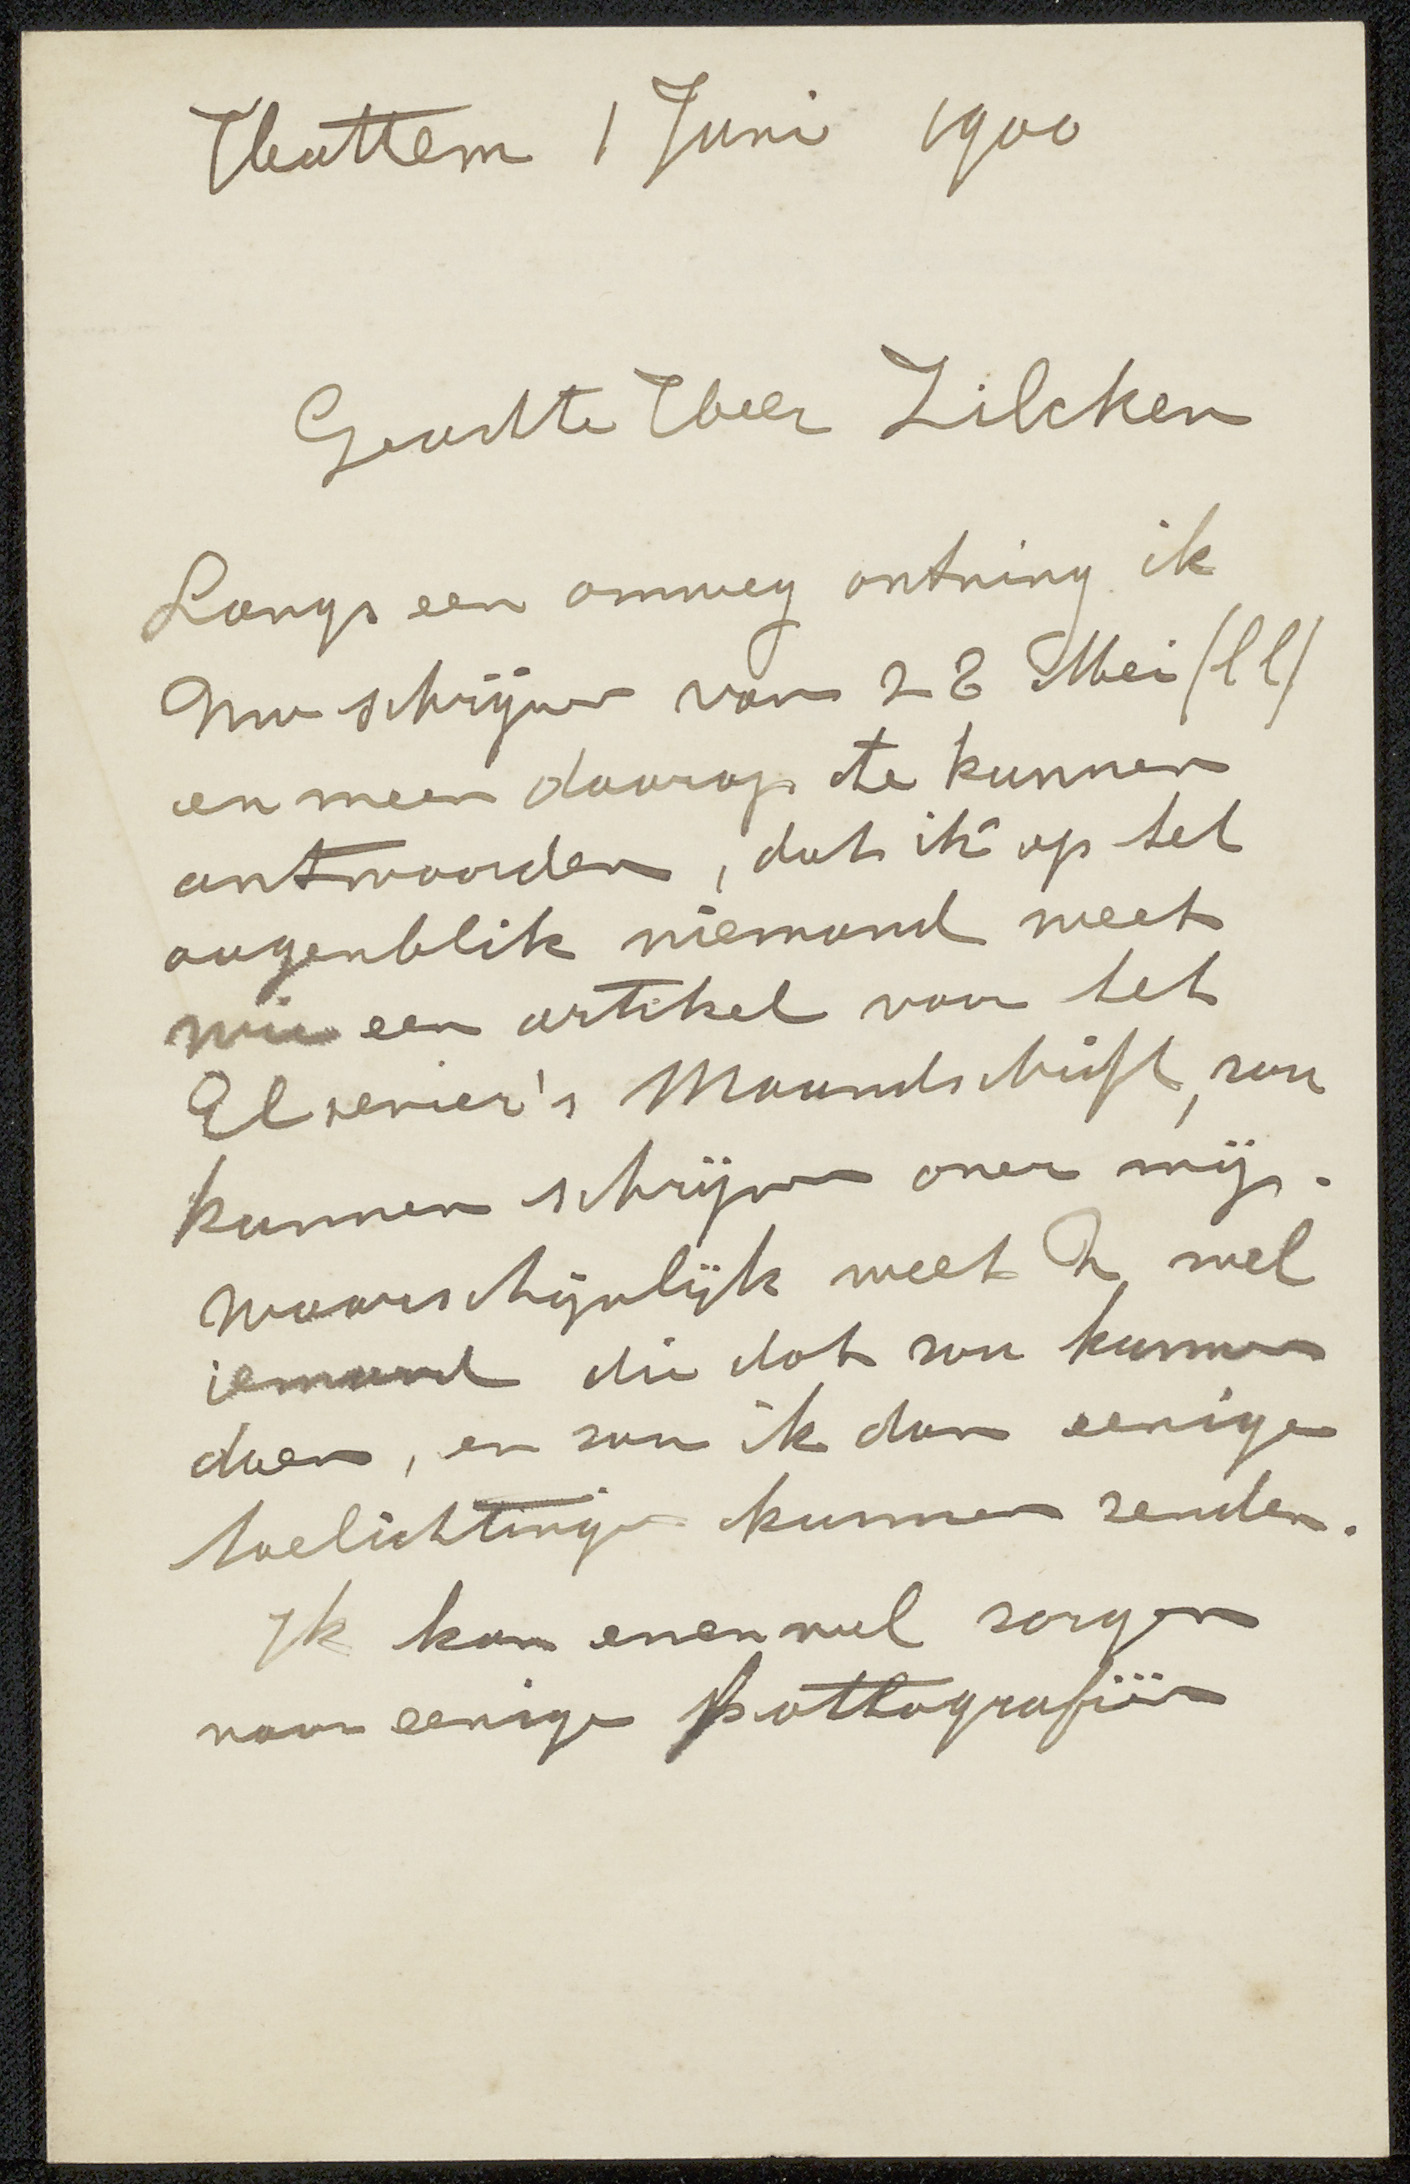 Hattem 1 Juni 1900
Geachte Heer Zilcken
Langs een omweg ontving ik
Uw schrijven van 28 Mei (ll)
en meen daarop te kunnen
antwoorden, dat ik op het
oogenblik niemand weet
wie een artikel voor het
Elsevier's Maandschrift, zou
kunnen schrijven over mij.
Waarschijnlijk weet U wel
iemand die dat zou kunnen
doen, en zou ik dan eenige
toelichtingen kunnen zenden.
Ik kan evenwel zorgen
voor eenige photografiën